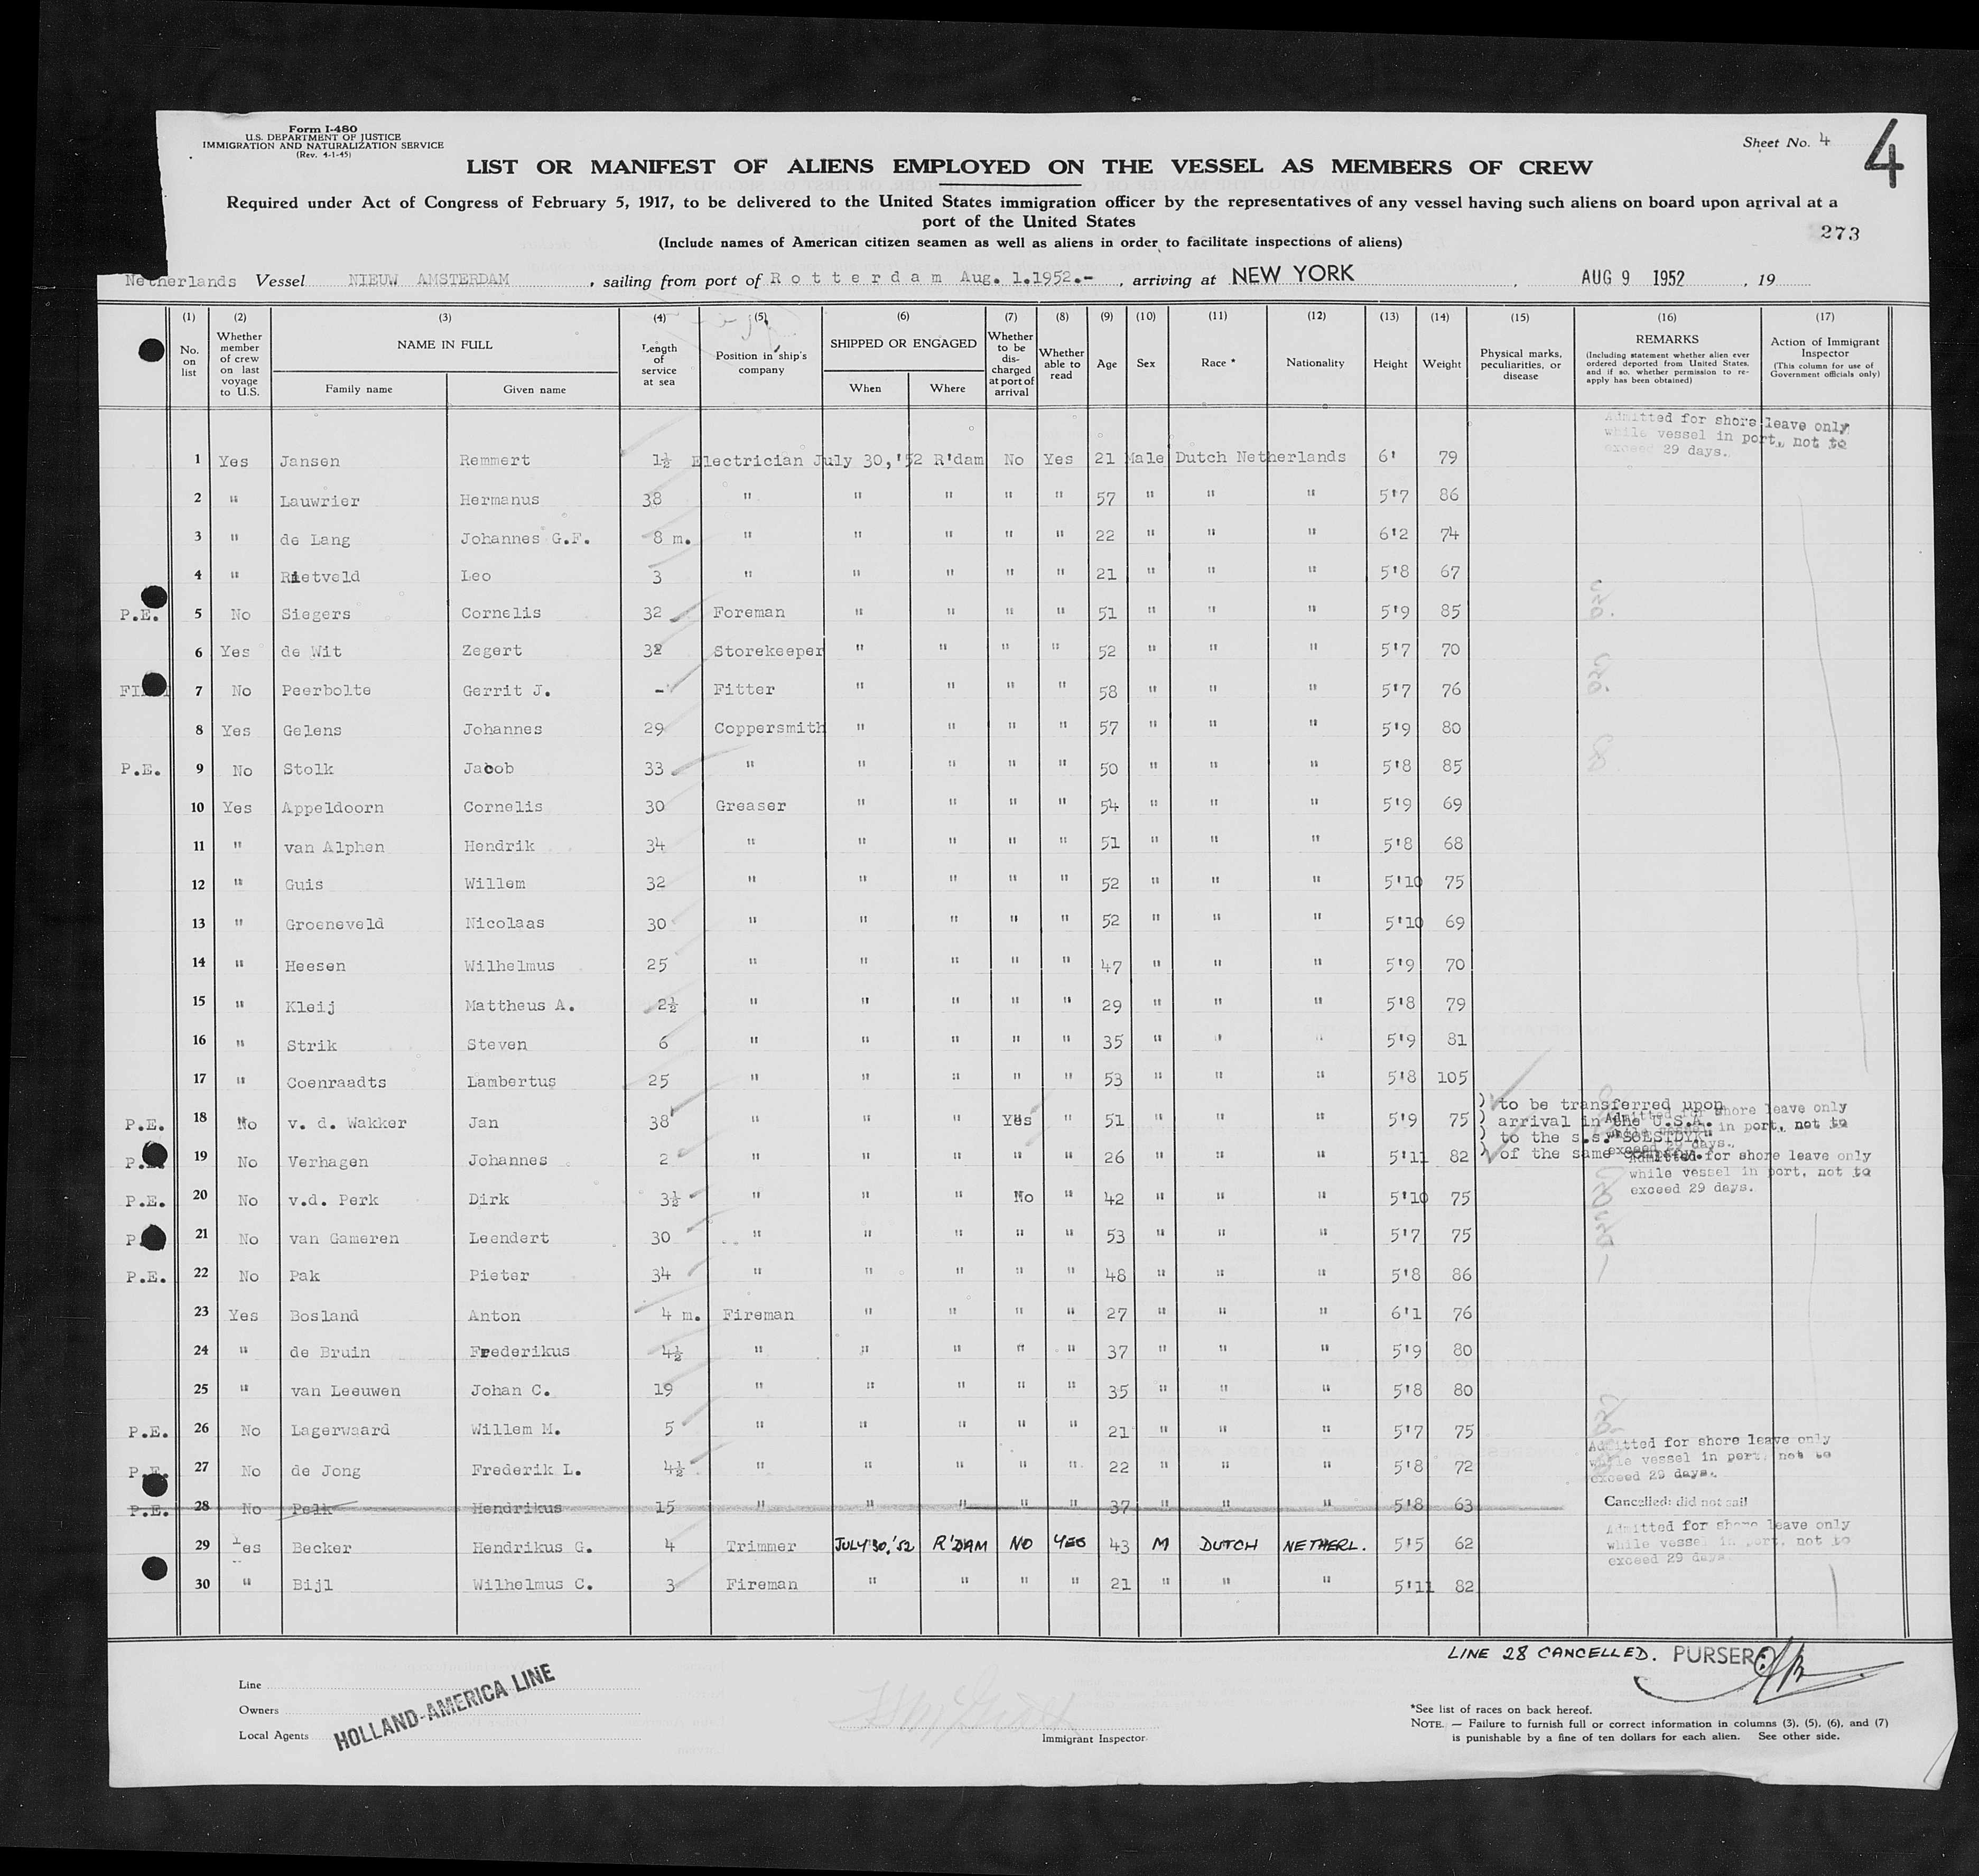 Form I-480
U.S. DEPARTMENT OF JUSTICE
IMMIGRATION AND NATURALIZATION SERVICE
(Rev. 4-1-45)
Sheet No. 4
4
LIST OR MANIFEST OF ALIENS EMPLOYED ON THE VESSEL AS MEMBERS OF CREW
Required under Act of Congress of February 5, 1917, to be delivered to the United States immigration officer by the representatives of any vessel having such aliens on board upon arrival at a
port of the United States
(Include names of American citizen seamen as well as aliens in order to facilitate inspections of aliens)
273
Netherlands Vessel NIEUW AMSTERDAM, sailing from port of Rotterdam Aug. 1.1952.-, arriving at NEW YORK, AUG 9 1952, 19
(1) No. on list
(2) Whether member of crew on last voyage to U.S.
(3) NAME IN FULL Family name Given name
(4) Length of service at sea
(5) Position in ship's company
(6) SHIPPED OR ENGAGED When Where
(7) Whether to be discharged at port of arrival
(8) Whether able to read
(9) Age
(10) Sex
(11) Race *
(12) Nationality
(13) Height
(14) Weight
(15) Physical marks, peculiarities, or disease
(16) REMARKS (Including statement whether alien ever ordered deported from United States, and if so, whether permission to re-apply has been obtained)
(17) Action of Immigrant Inspector (This column for use of Government officials only)
Admitted for shore leave only
while vessel in port, not to
exceed 29 days.
1 Yes Jansen Remmert 1½ Electrician July 30,'52 R'dam No Yes 21 Male Dutch Netherlands 6' 79
2 " Lauwrier Hermanus 38 " " " " " 57 " " " 5'7 86
3 " de Lang Johannes G.F. 8 m. " " " " " 22 " " " 6'2 74
4 " Rietveld Leo 3 " " " " " 21 " " " 5'8 67
P.E. 5 No Siegers Cornelis 32 Foreman " " " " 51 " " " 5'9 85
6 Yes de Wit Zegert 32 Storekeeper " " " " 52 " " " 5'7 70
7 No Peerbolte Gerrit J. - Fitter " " " " 58 " " " 5'7 76
8 Yes Gelens Johannes 29 Coppersmith " " " " 57 " " " 5'9 80
P.E. 9 No Stolk Jacob 33 " " " " " 50 " " " 5'8 85
10 Yes Appeldoorn Cornelis 30 Greaser " " " " 54 " " " 5'9 69
11 " van Alphen Hendrik 34 " " " " " 51 " " " 5'8 68
12 " Guis Willem 32 " " " " " 52 " " " 5'10 75
13 " Groeneveld Nicolaas 30 " " " " " 52 " " " 5'10 69
14 " Heesen Wilhelmus 25 " " " " " 47 " " " 5'9 70
15 " Kleij Mattheus A. 2½ " " " " " 29 " " " 5'8 79
16 " Strik Steven 6 " " " " " 35 " " " 5'9 81
17 " Coenraadts Lambertus 25 " " " " " 53 " " " 5'8 105
P.E. 18 No v. d. Wakker Jan 38 " " " Yes " 51 " " " 5'9 75
) to be transferred upon
) arrival in the U.S.A.
) to the s.s. "SOESTDYK"
) of the same company.
Admitted for shore leave only
while vessel in port, not to
exceed 29 days.
P.E. 19 No Verhagen Johannes 2 " " " " " 26 " " " 5'11 82
Admitted for shore leave only
while vessel in port, not to
exceed 29 days.
P.E. 20 No v.d. Perk Dirk 3½ " " " No " 42 " " " 5'10 75
P. 21 No van Gameren Leendert 30 " " " " " 53 " " " 5'7 75
P.E. 22 No Pak Pieter 34 " " " " " 48 " " " 5'8 86
23 Yes Bosland Anton 4 m. Fireman " " " " 27 " " " 6'1 76
24 " de Bruin Frederikus 4½ " " " " " 37 " " " 5'9 80
25 " van Leeuwen Johan C. 19 " " " " " 35 " " " 5'8 80
P.E. 26 No Lagerwaard Willem M. 5 " " " " " 21 " " " 5'7 75
Admitted for shore leave only
while vessel in port, not to
exceed 29 days.
P.E. 27 No de Jong Frederik L. 4½ " " " " " 22 " " " 5'8 72
P.E. 28 No Pelk Hendrikus 15 " " " " " 37 " " " 5'8 63 Cancelled: did not sail
Admitted for shore leave only
while vessel in port, not to
exceed 29 days.
29 Yes Becker Hendrikus G. 4 Trimmer JULY 30,'52 R'DAM NO YES 43 M DUTCH NETHERL. 5'5 62
30 " Bijl Wilhelmus C. 3 Fireman " " " " 21 " " " 5'11 82
LINE 28 CANCELLED. PURSER:
Line
Owners
Local Agents
HOLLAND-AMERICA LINE
Immigrant Inspector
*See list of races on back hereof.
NOTE. — Failure to furnish full or correct information in columns (3), (5), (6), and (7)
is punishable by a fine of ten dollars for each alien. See other side.